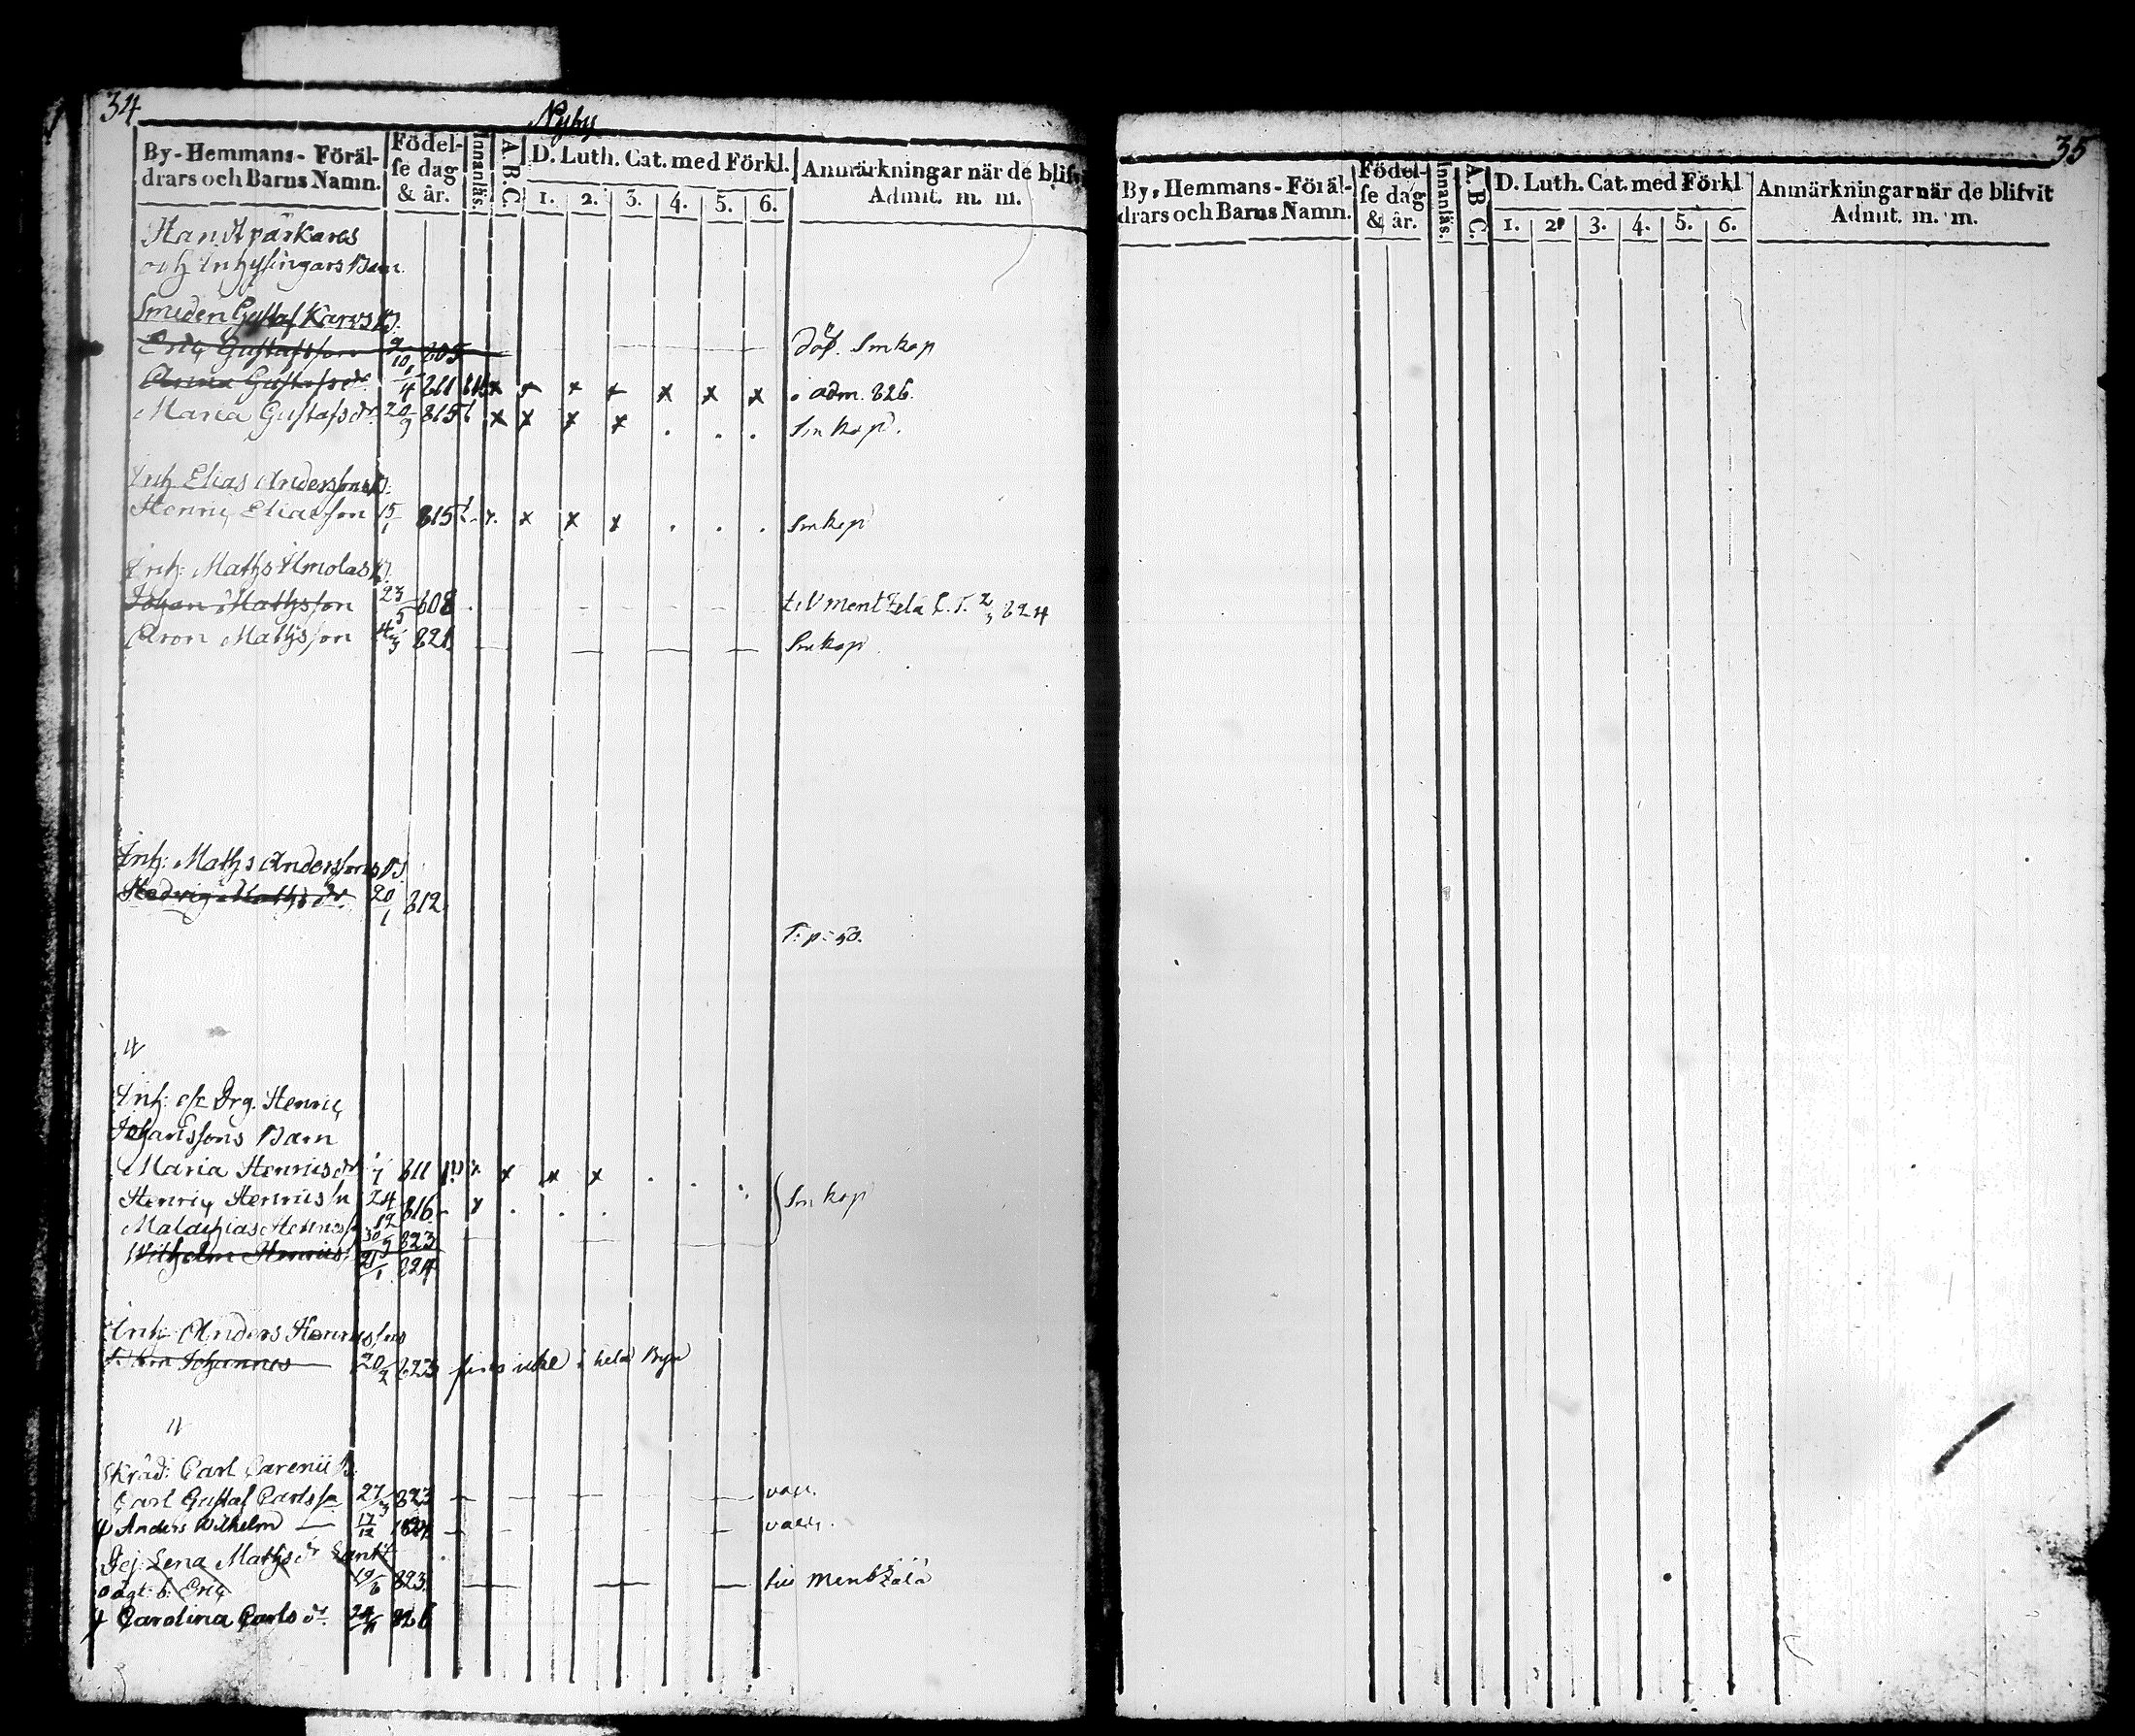 34
Nyby
By-Hemmans-Föräl-
drars och Barns Namn.
Födel-
se dag
& år.
Innanläs.
A. B C.
D. Luth. Cat. med Förkl.
1. 2. 3. 4. 5. 6.
Anmärkningar när de blifv
Admit. m. m.
Handtvärkares
och Inhysingars Barn.
Smeden Gustaf Karvs B.
Eric Gustafsson 9/10 805 Smkop
Anna Gustafsdr /4 811 x x x x x x x adm. 826.
Maria Gustafsdr 20/9 815 x x x x . . . Smkop.
Inh Elias Anderssons B.
Henric Eliasson 15/1 815 x. x x x . . . Smkop
Inh: Maths Almolas B.
Johan Mathsson 23/5 808 till Mentzela 824
Aron Mathsson 821 Smkop
Inh: Maths Anderssons B.
Hedvig Mathsdr. 20/1 812
T: p: 50.
Inh: Drg. Henric
Johanssons Barn
Maria Henricsdr 811 x. x x x . . .
Henric Henricsn 24/12 816 x . . .
Smkop
Malachias Henrics 30/9 823
Wilhelm Henrics 21/1 824
Inh: Anders Henrics sns
Barn Johannes 20/2 823 fins icke i hela Byn
Skräd: Carl Carenii B.
Carl Gustaf Carlss 27/3 823 vacc.
Anders Wilhelm 17/12 1824 vacc.
Pej: Lena Mathsdr
oägt. b. Eric 19/6 823 till Mentzälä
Carolina Carlsdr. 826
35
By-Hemmans-Föräl-
drars och Barns Namn.
Födel-
se dag
& år.
Innanläs.
A. B C.
D. Luth. Cat. med Förkl
1. 2. 3. 4. 5. 6.
Anmärkningar när de blifvit
Admit. m. m.